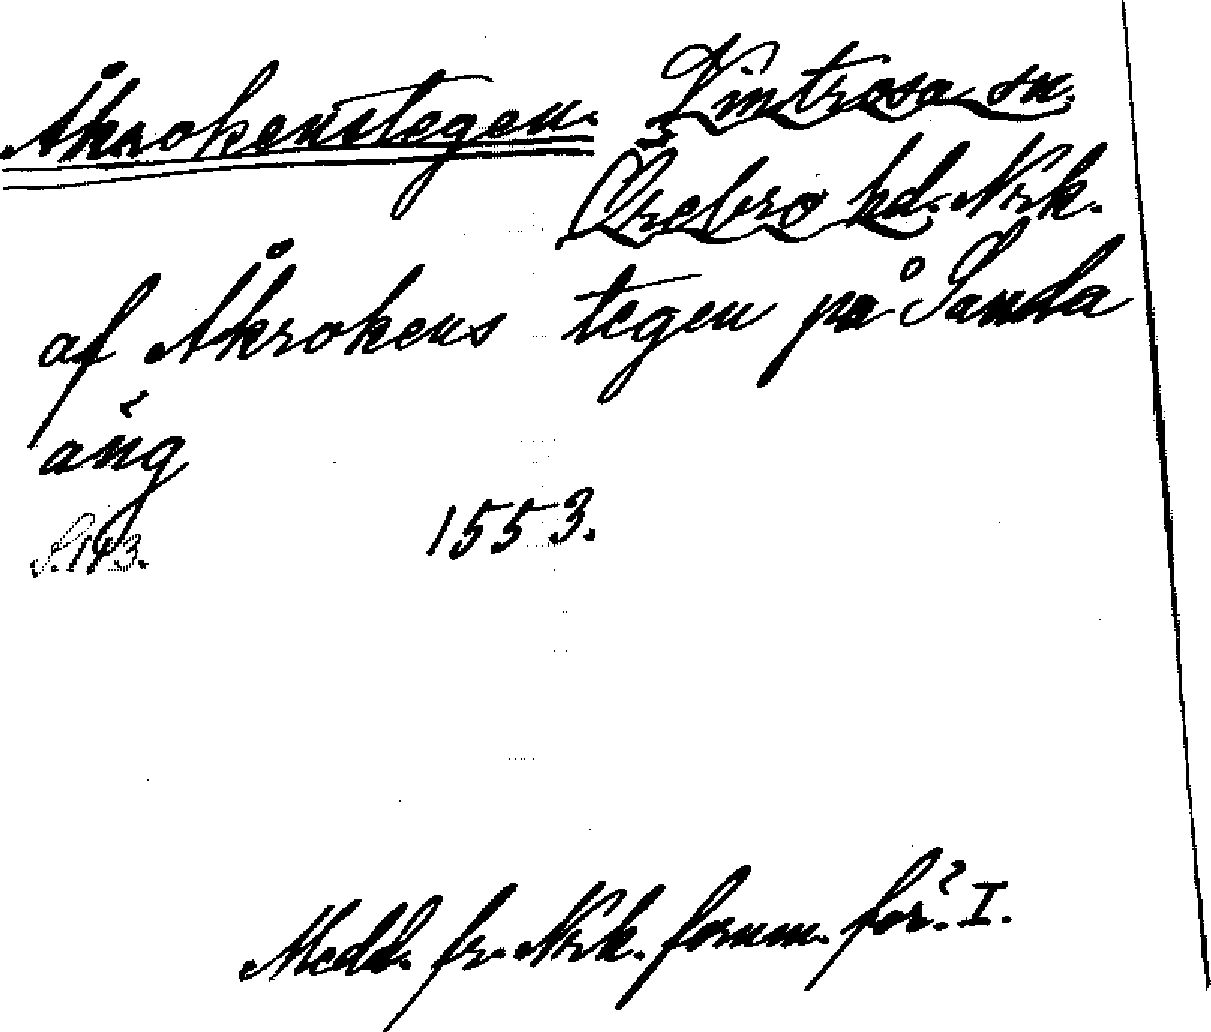 Åkrokenstegen. Kintrosa sn.
Örebro hd. Nrk.
af Åkrokens tegen på Sanda
äng
S. 143. 1553.
Medd. fr. Nrk. fornm. för. I.